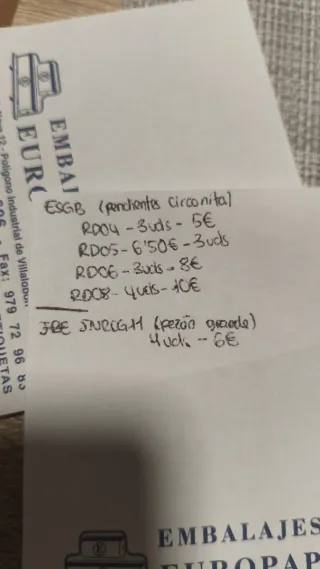 EMBAJ
EURO
Nave 12 - Polígono Industrial de Villalobón
Fax: 979 72 96 83
ETIQUETAS
ESGB (pendientes Circonita)
RD04 - 3uds - 5€
RD05 - 6'50€ - 3uds
RD06 - 3uds - 8€
RD08 - 4uds - 10€
(pezón grande)
4uds - 6€
EMBALAJES
EUROPAP